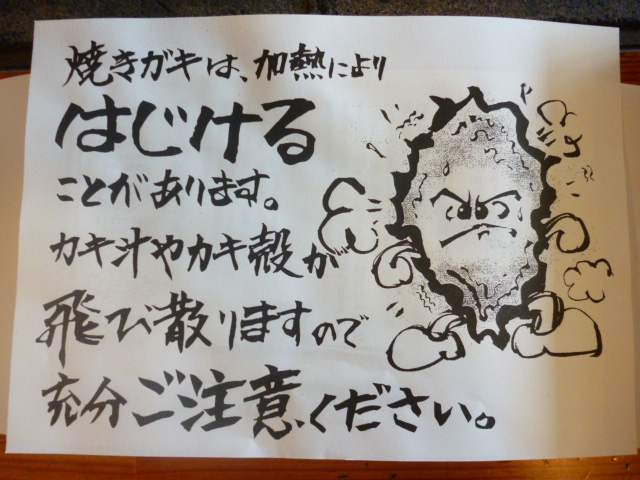 焼きガキは、加熱により
はじける
ことがあります。
カキ汁やカキ殻が
飛び散りますので
充分ご注意ください。